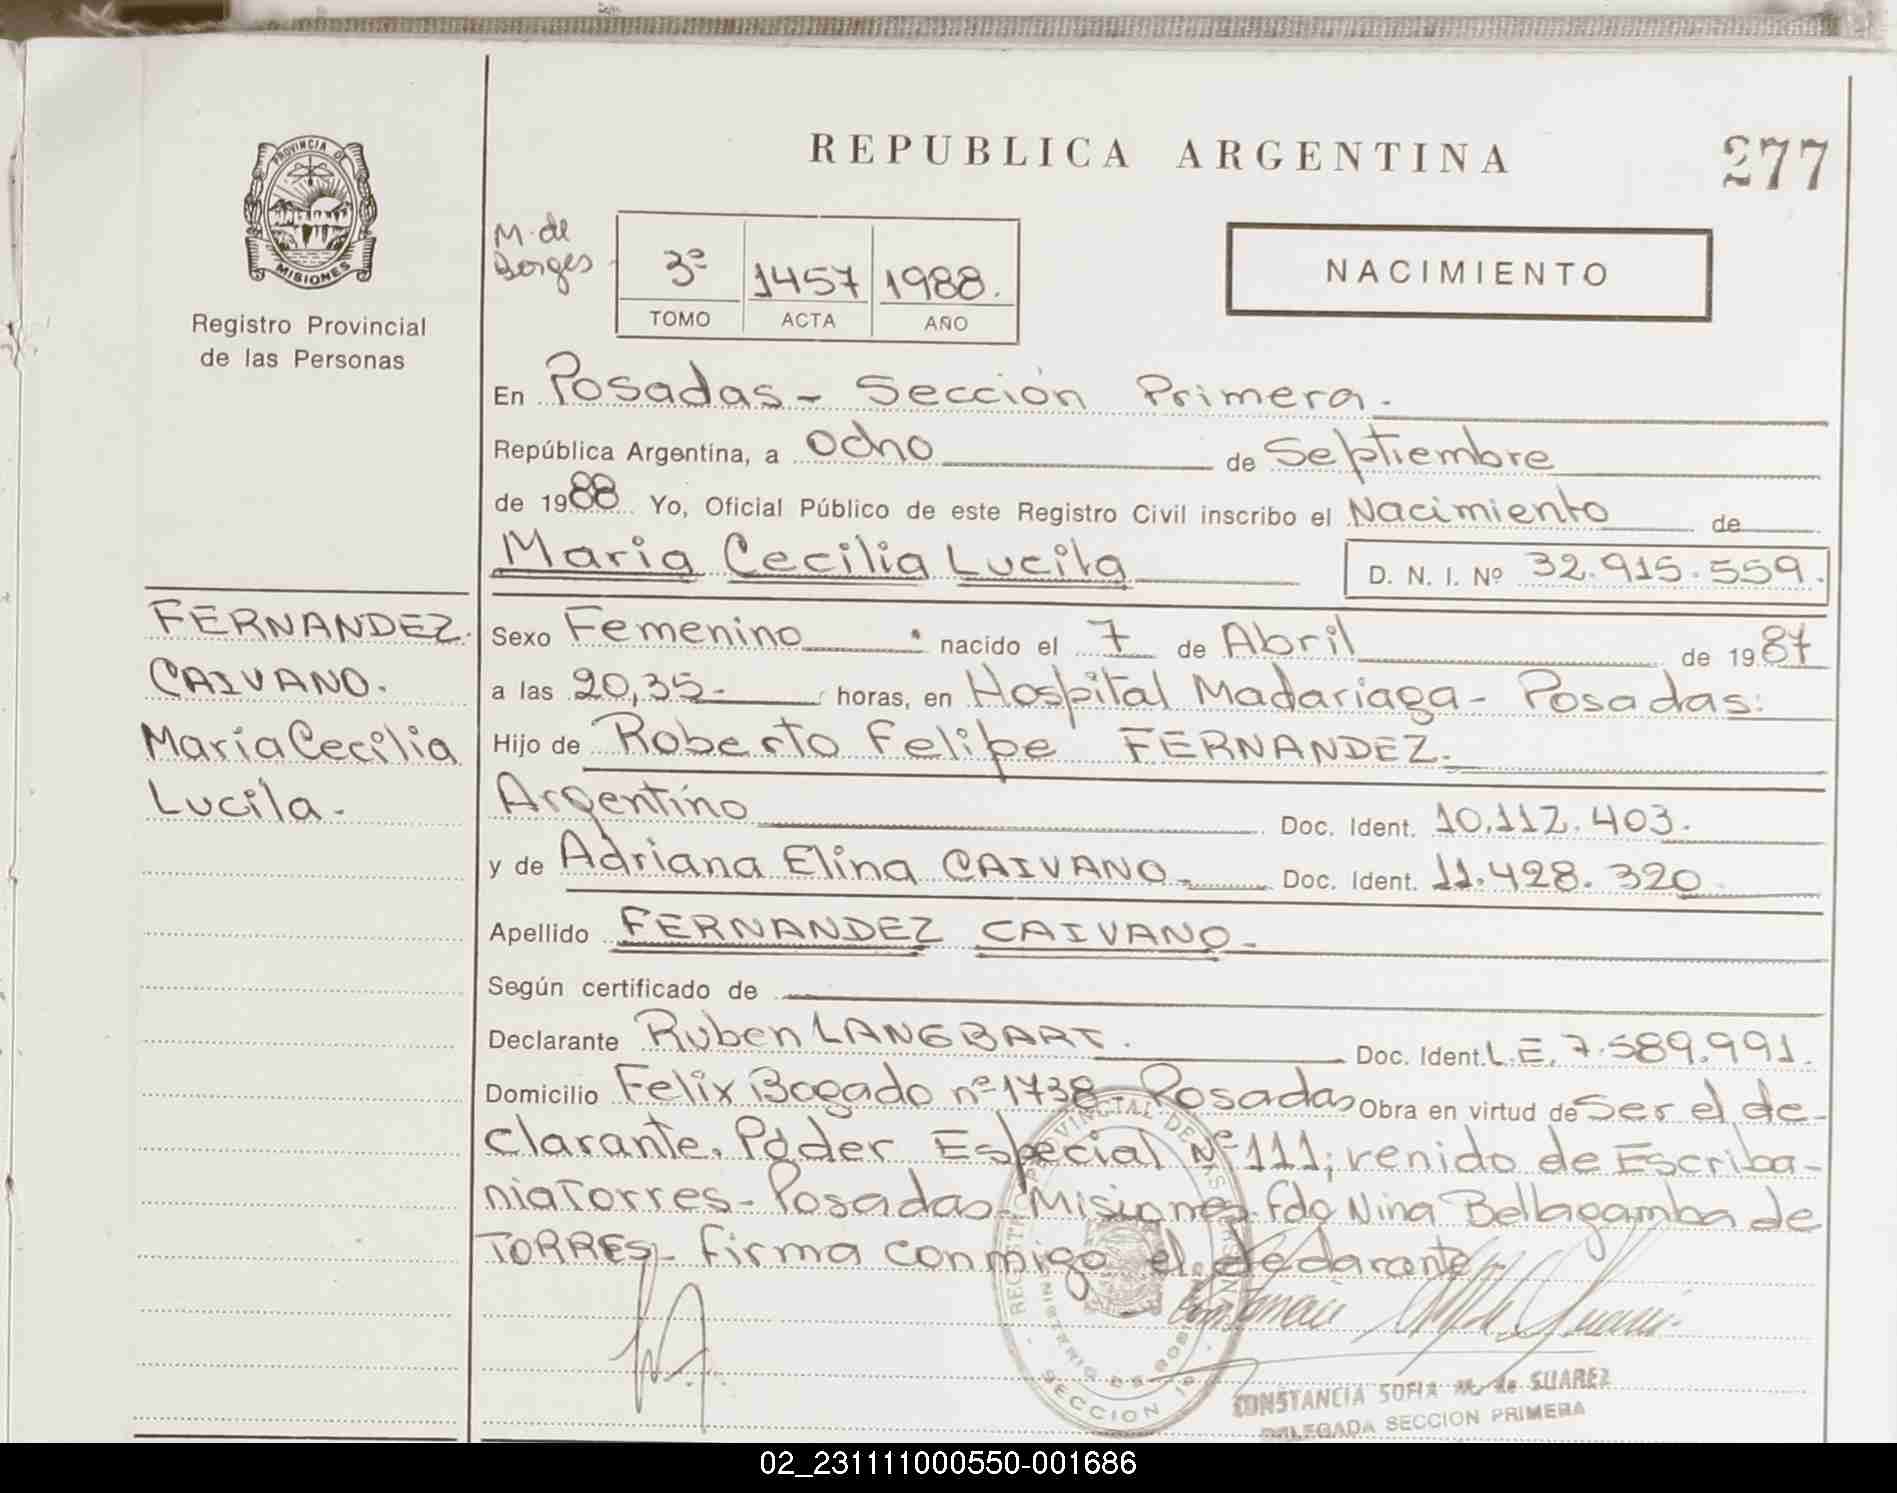 REPUBLICA ARGENTINA
277
PROVINCIA DE
MISIONES
Registro Provincial
de las Personas
M. de
Borges
3º 1457 1988.
TOMO ACTA AÑO
NACIMIENTO
En Posadas - Sección Primera.
República Argentina, a ocho de Septiembre
de 1988 Yo, Oficial Público de este Registro Civil inscribo el Nacimiento de
Maria Cecilia Lucila D. N. I. Nº 32.915.559.
FERNANDEZ
CAIVANO.
Maria Cecilia
Lucila.
Sexo Femenino nacido el 7 de Abril de 1987
a las 20,35 horas, en Hospital Madariaga - Posadas.
Hijo de Roberto Felipe FERNANDEZ.
Argentino Doc. Ident. 10.112.403.
y de Adriana Elina CAIVANO. Doc. Ident. 11.428.320
Apellido FERNANDEZ CAIVANO.
Según certificado de
Declarante Ruben LANGBART. Doc. Ident. L.E. 7.589.991.
Domicilio Felix Bogado nº 1738 - Posadas Obra en virtud de Ser el de-
clarante. Poder Especial Nº 111; venido de Escriba-
nia Torres - Posadas - Misiones. Fdo Nina Bellagamba de
TORRES - firma conmigo el declarante.
CONSTANCIA SOFIA M. de SUAREZ
DELEGADA SECCION PRIMERA
02_231111000550-001686